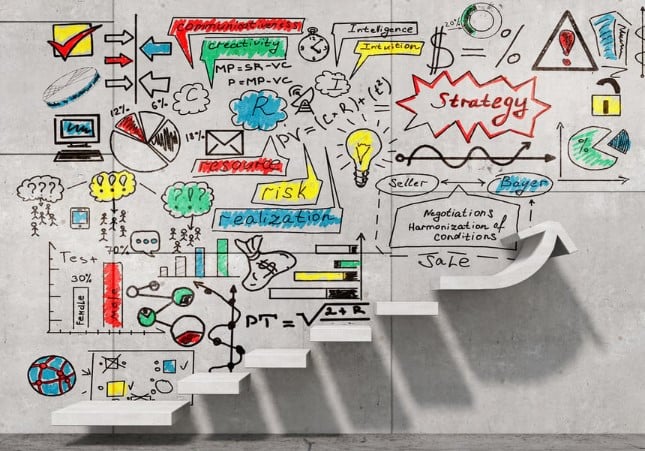 communicativeness
creativity
MP=SR-VC
P=MP-VC
Inteligence
Intuition
20%
$ = %
Strategy
C
I
R
12%
6%
18%
PV=(C+R)+(t²)
resource
risk
realization
Seller
Bayer
Negotiations
Harmonization of
Conditions
Sale
%
???
!?!?!
!?!
Test
70%
30%
female
male
$
PT=√2+R